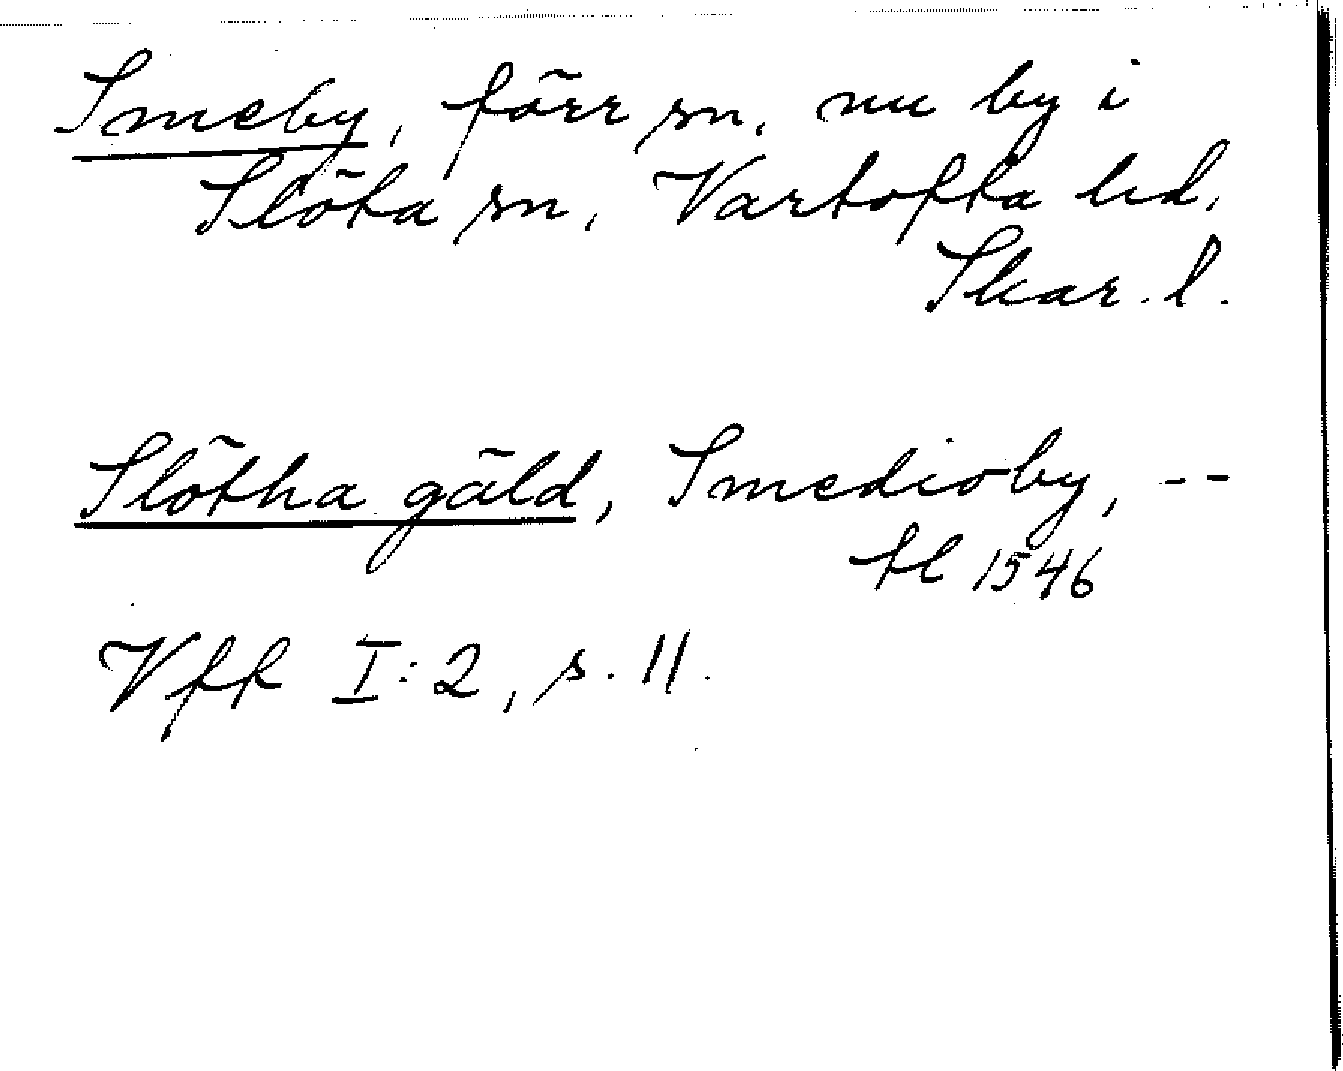 Smeby, förr sn, nu by i
Slöta sn, Vartofta hd,
Skar. l.
Slötha gäld, Smedioby, --
tl 1546
Vff I:2, s. 11.